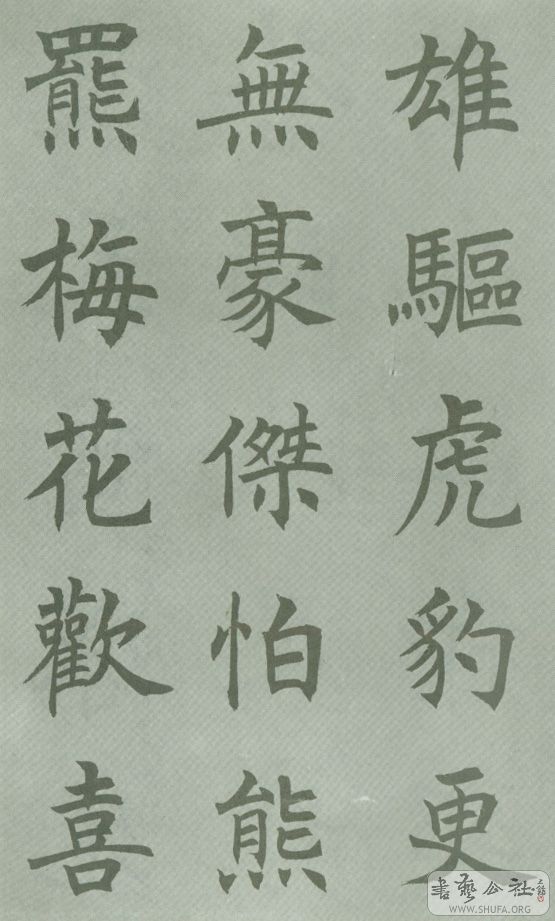 雄驅虎豹更
無豪傑怕熊
羆梅花歡喜
書藝公社
WWW.SHUFA.ORG